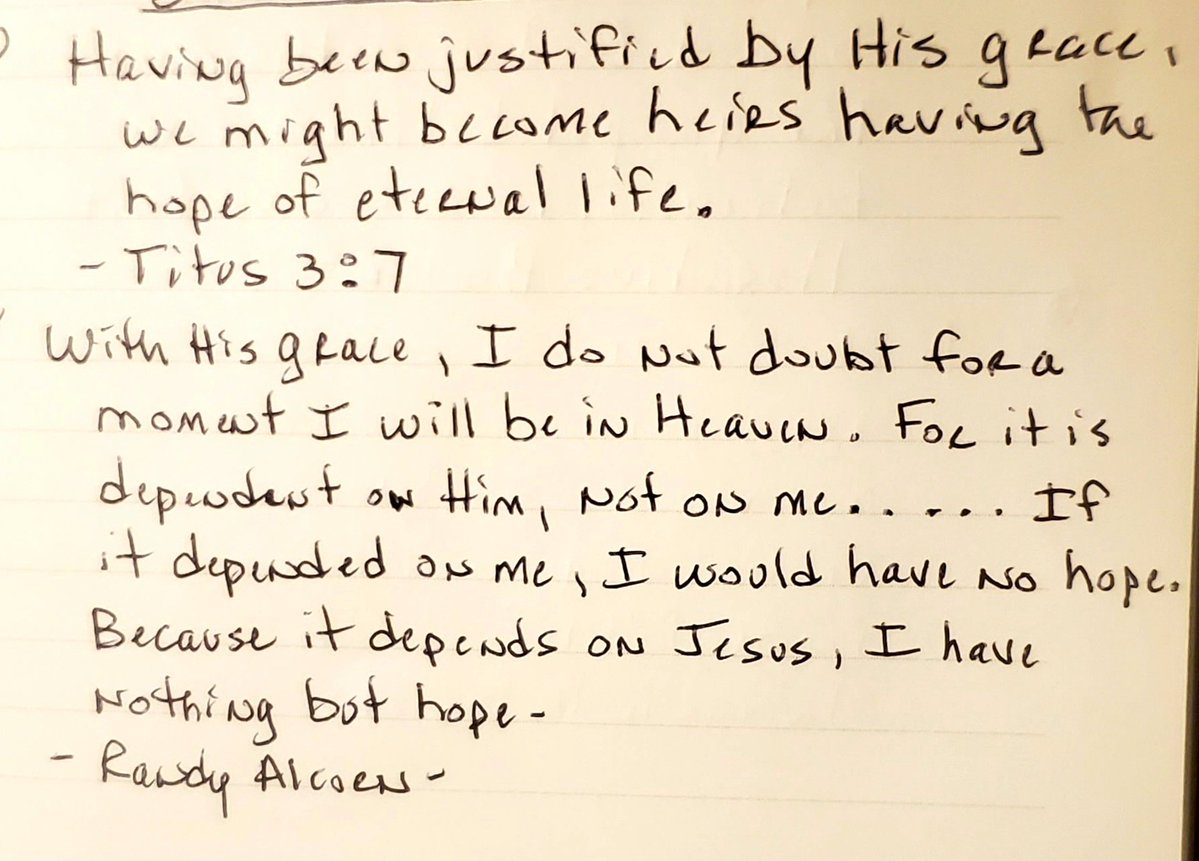 Having been justified by His grace,
we might become heirs having the
hope of eternal life.
- Titus 3:7
With His grace, I do not doubt for a
moment I will be in Heaven. For it is
dependent on Him, not on me...... If
it depended on me, I would have no hope.
Because it depends on Jesus, I have
nothing but hope -
- Randy Alcorn -